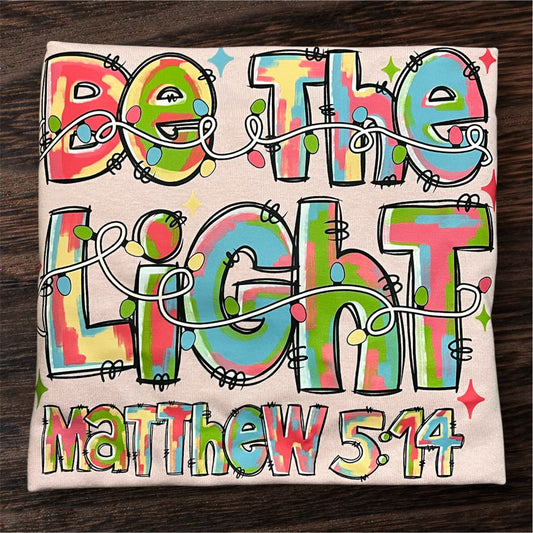 Be The
LiGhT
MaTThew 5:14